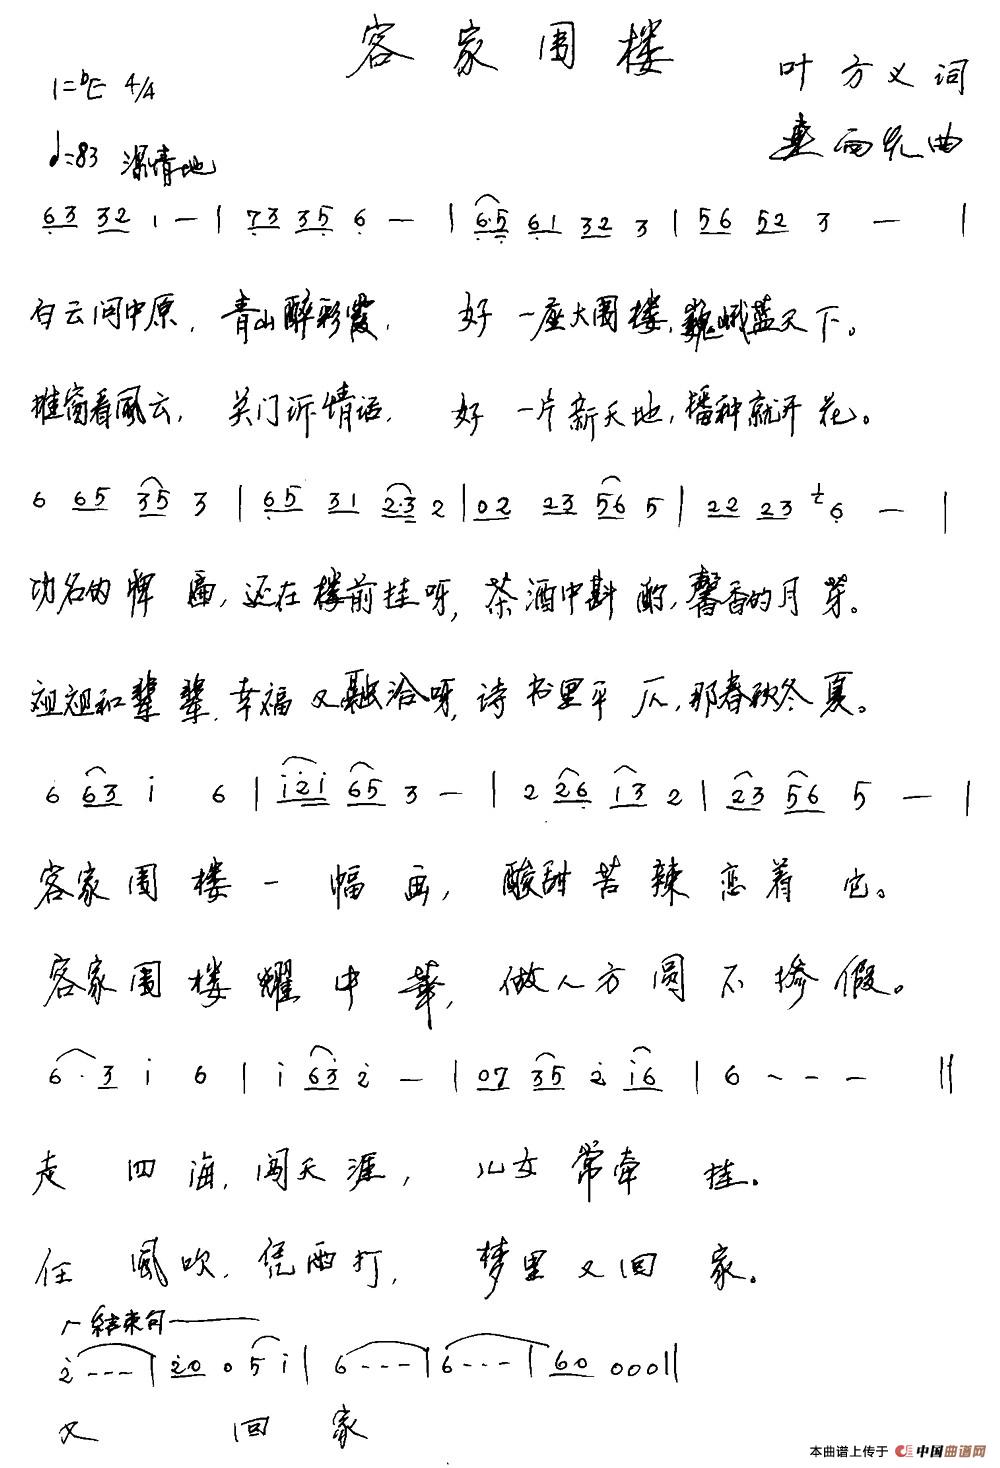 客家围楼
1=♭E 4/4
叶方义词
♩=83 深情地
西光曲
63 32 1 — | 73 35 6 — | 6·5 61 32 3 | 56 52 3 — |
白云问中原，青山醉彩霞，好一座大围楼，巍峨蓝天下。
推窗看风云，关门诉情话，好一片新天地，播种就开花。
6 65 35 3 | 65 31 2·3 2 | 02 23 56 5 | 22 23 6 — |
功名的牌匾，还在楼前挂呀，茶酒中斟酌，馨香的月芽。
祖祖和辈辈，幸福又融洽呀，诗书里平仄，那春秋冬夏。
6 63 i 6 | i2i 65 3 — | 2 26 13 2 | 23 56 5 — |
客家围楼一幅画，酸甜苦辣恋着它。
客家围楼耀中华，做人方圆不掺假。
6·3 i 6 | i 63 2 — | 07 35 2 i6 | 6 - - - ||
走四海，闯天涯，儿女常牵挂。
任风吹，凭雨打，梦里又回家。
结束句
2 - - - | 20 0 5 i | 6 - - - | 6 - - - | 60 000 ||
又回家
本曲谱上传于 中国曲谱网